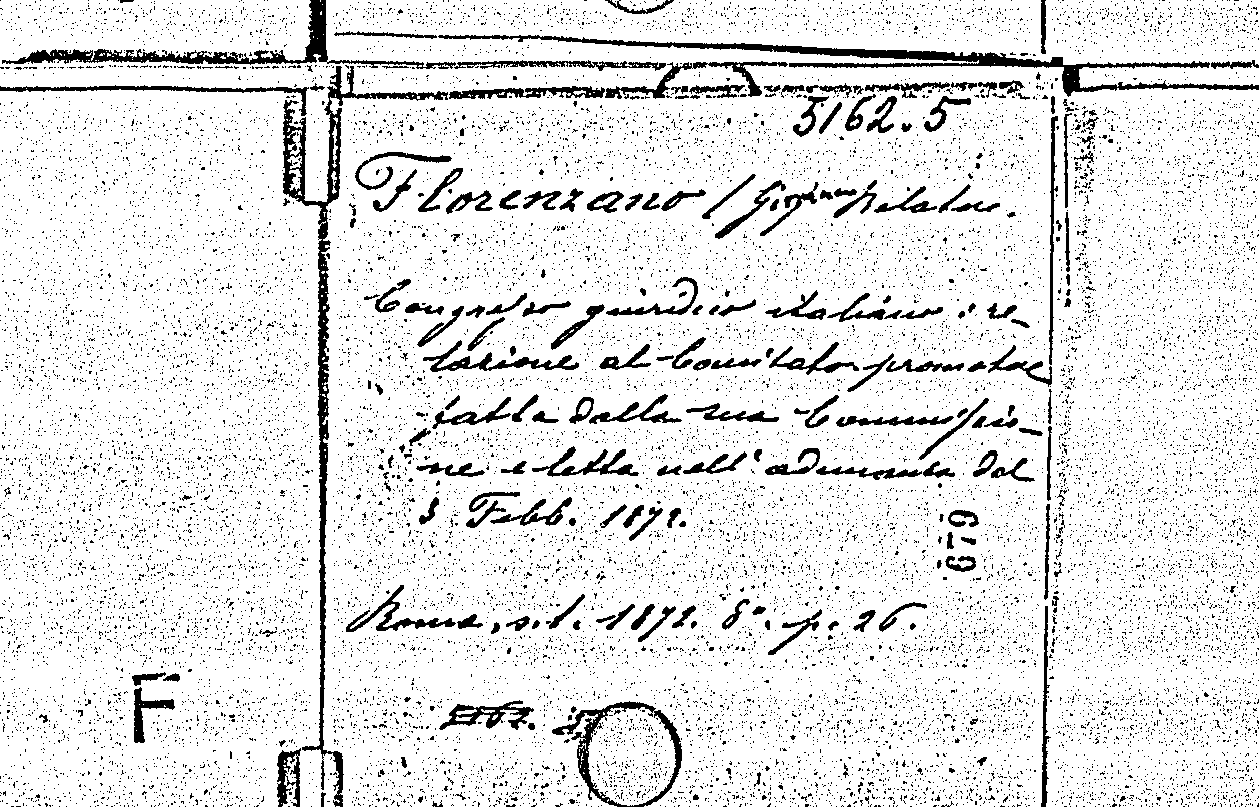 5162.5
Florenzano / Giovanni relatore.
Congresso giuridico italiano: re-
lazione al Comitato promotore
fatta dalla sua Commissio-
ne e letta nell'adunanza del
3 Febb. 1872.
679
Roma, s.t. 1872. 8°. p. 26.
F
5162. 5